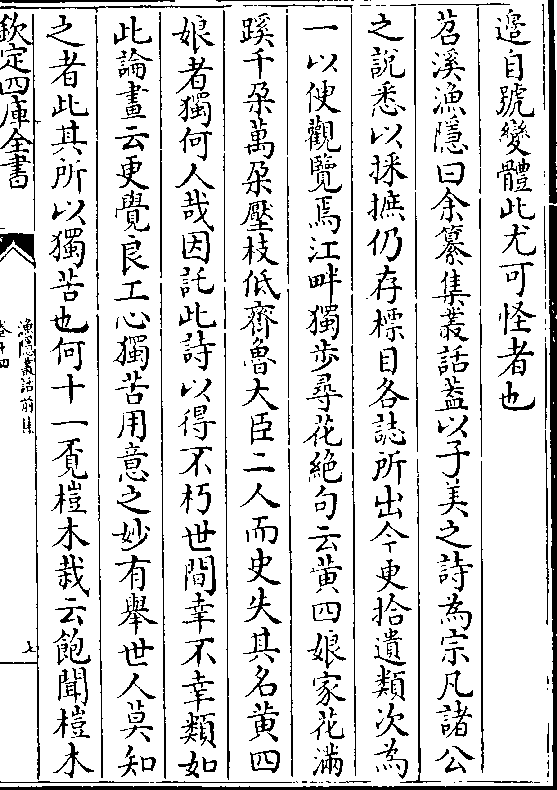 邉自號變體此尤可怪者也
苕溪漁隱曰余纂集叢話葢以子美之詩為宗凡諸公
之說悉以採摭仍存標目各誌所出今更拾遺類次為
一以便觀覽焉江畔獨步尋花絶句云黄四娘家花滿
蹊千朶萬朶壓枝低齊魯大臣二人而史失其名黄四
娘者獨何人哉因託此詩以得不朽世間幸不幸類如
此論畫云更覺良工心獨苦用意之妙有舉世人莫知
之者此其所以獨苦也何十一覔榿木栽云飽聞榿木
欽定四庫全書
漁隱叢話前集
卷十四
七